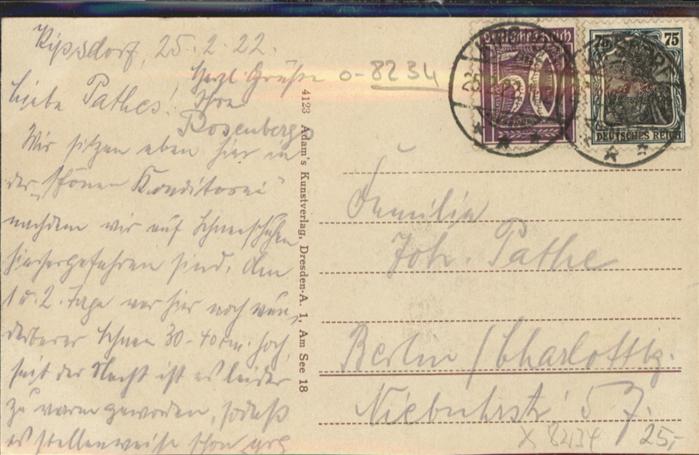 Kipsdorf, 25.2.22.
Herzl. Grüße
Ihre
Rosenberg
Liebe Pathes!
Wir sitzen eben hier in
der "schönen Konditorei"
nachdem wir auf Schneeschuhen
hierhergefahren sind. Am
1 u. 2. Tage war hier noch wun-
derbarer Schnee 30-40 cm. hoch,
seit der Nacht ist es leider
zu warm geworden, sodaß
es stellenweise schon
o-8234
4123 Adam's Kunstverlag, Dresden-A. 1, Am See 18
Deutsches Reich
50
75 75
DEUTSCHES REICH
Familie
Joh. Pathe
Berlin / Charlottbg.
Niebuhrstr. 57.
x 8234 25,-